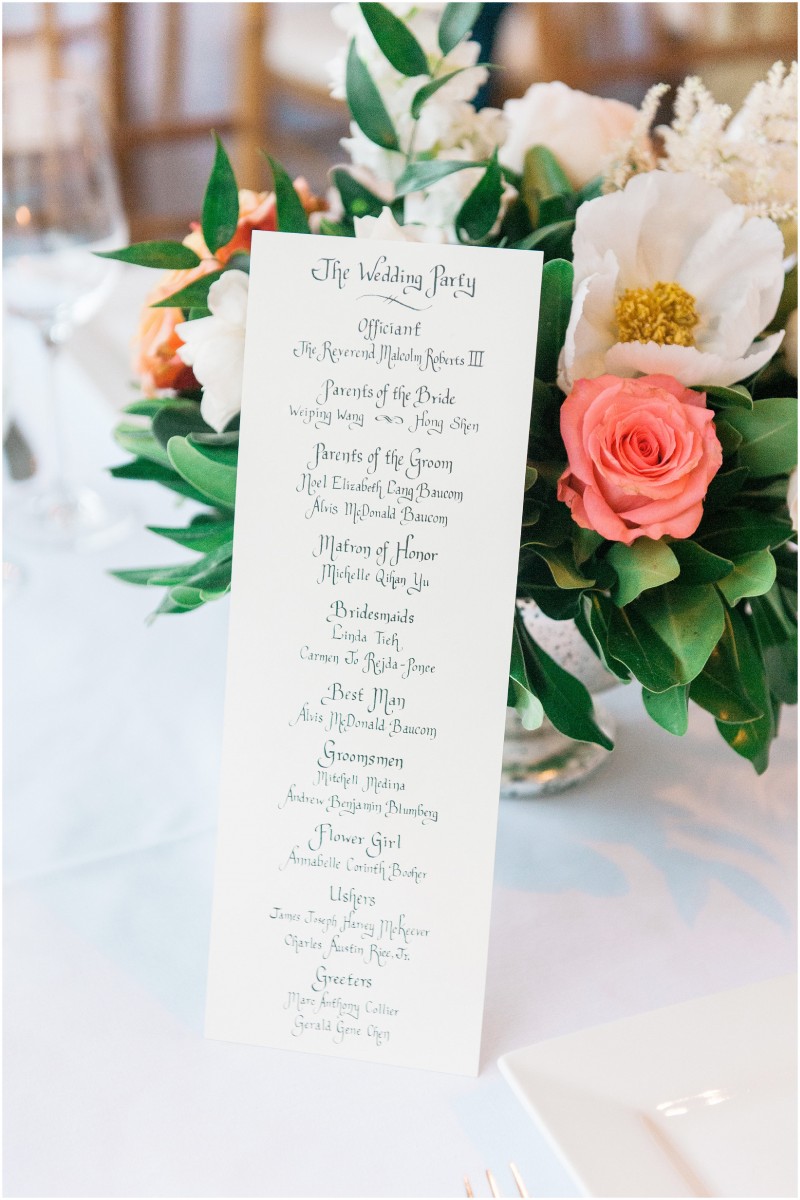 The Wedding Party
Officiant
The Reverend Malcolm Roberts III
Parents of the Bride
Weiping Wang Hong Shen
Parents of the Groom
Noel Elizabeth Lang Baucom
Alvis McDonald Baucom
Matron of Honor
Michelle Qihan Yu
Bridesmaids
Linda Tieh
Carmen Jo Rejda-Ponce
Best Man
Alvis McDonald Baucom
Groomsmen
Mitchell Medina
Andrew Benjamin Blumberg
Flower Girl
Annabelle Corinth Booher
Ushers
James Joseph Harvey McKeever
Charles Austin Rice, Jr.
Greeters
Marc Anthony Collier
Gerald Gene Chen